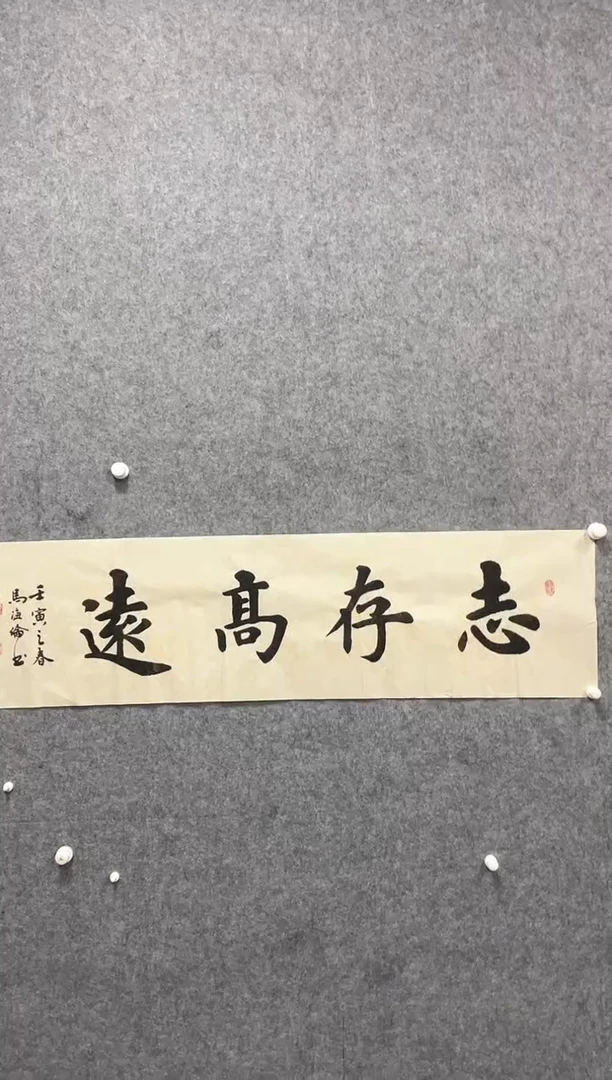 志存高遠
壬寅之春
馬注倫书